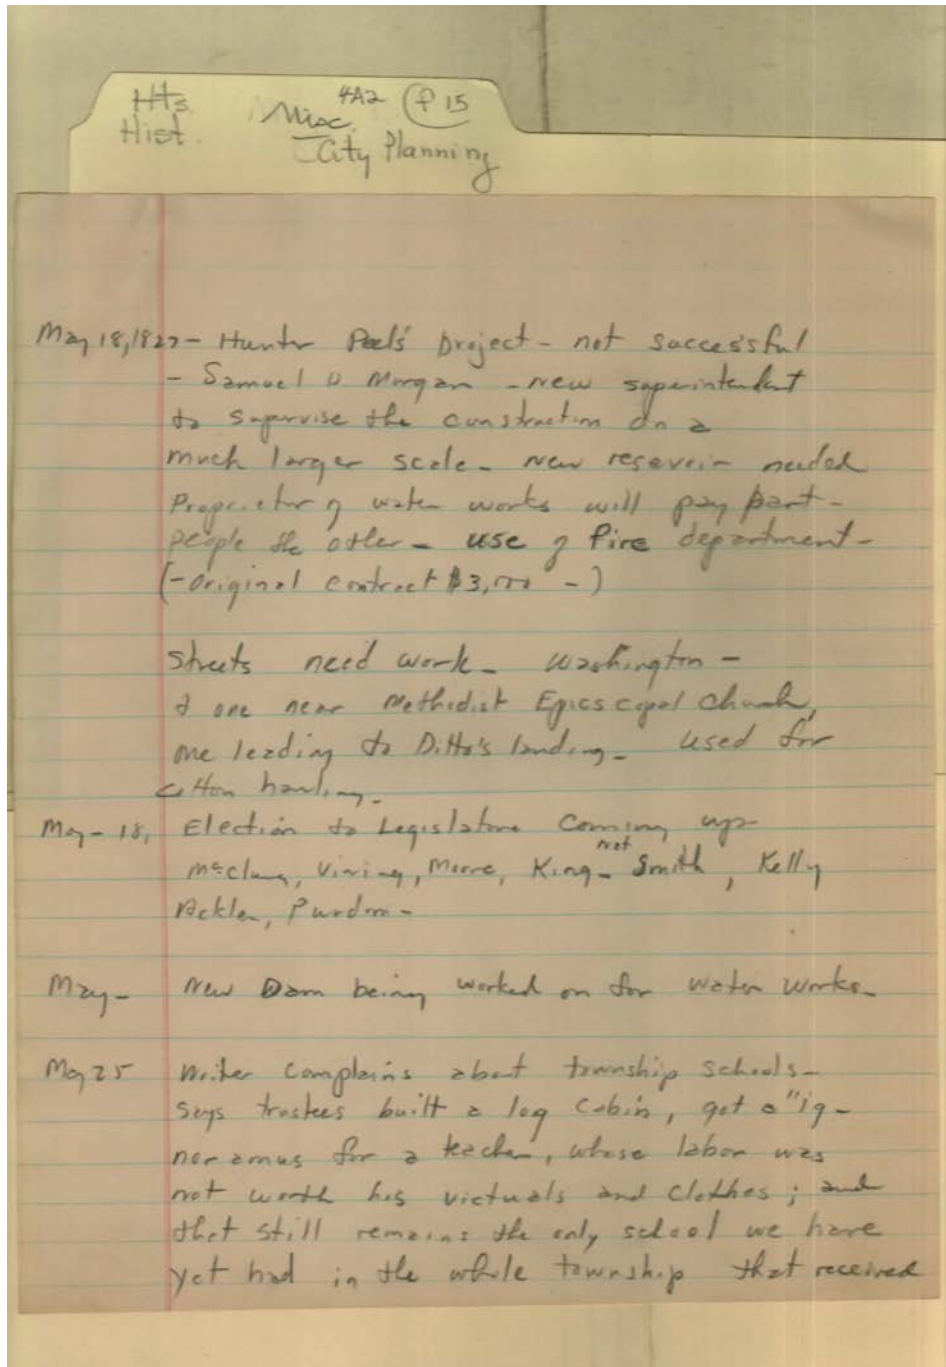 Hts. Hist.
Misc. 4A2 P 15
City Planning
May 18, 1827 - Hunter Peel's project - not successful
- Samuel D Morgan - new superintendent
to supervise the construction on a
much larger scale - new resevoir needed
Proprietor of water works will pay part -
people the other - use of fire department -
(- Original contract $3,000 - )
Streets need work - Washington -
& one near Methodist Episcopal Church,
one leading to Ditto's landing - used for
cotton hauling -
May - 18, Election to Legislature coming up -
McClung, Vining, Moore, King - not Smith, Kelly
Acklen, Purdom -
May - New Dam being worked on for water works -
May 25 Writer complains about township schools -
says trustees built a log cabin, got a "ig-
noramus for a teacher, whose labor was
not worth his victuals and clothes; and
that still remains the only school we have
yet had in the whole township that received